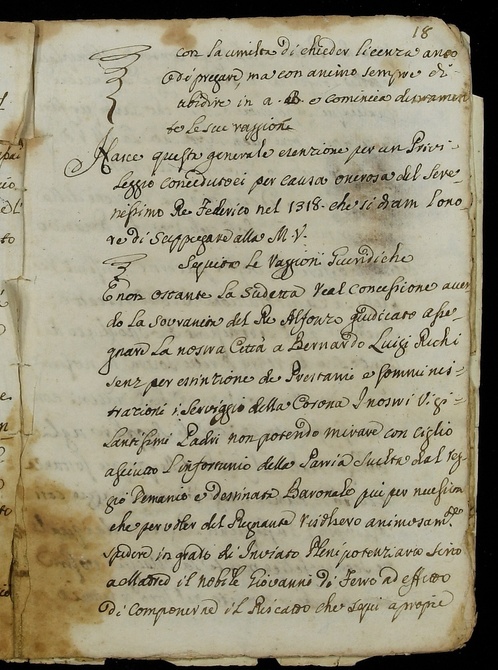 18
con la umiltà di chieder licenza anco
di pregare, ma con animo sempre di
ubidire in a. e comincia dicanamen
te le sue raggione
Nasce questa generale esenzione per un Privi-
leggio conceduto ci per causa onerosa del Sere-
nissimo Re Federico nel 1318. che si dram l'ono
re di Suppegare alla M.V.
Sequita le Raggioni Gueridiche
E non ostante la Sudetta real concessione aven
do la Sovranità del Re Alfonzo giudicato asse-
gnare la nostra Città a Bernardo Luigi Richi
senz per estinzione de Prestami e Somminis-
trazioni in Serviggio della Corona I nostri Vigi-
lantissimi Padri non potendo mirare con ciglio
asciutto l'infortunio della Patria Suelta dal reg
gio Demanio e destinata Baronale piu per necessità
che per voler del Regnante risolsero animosam.te
spedire in grado di Inviato Plenipotenziario sino
a Madrid il nobile Giovanni di Ferro ad effetto
di Componerne il Riscatto che segui a proprie